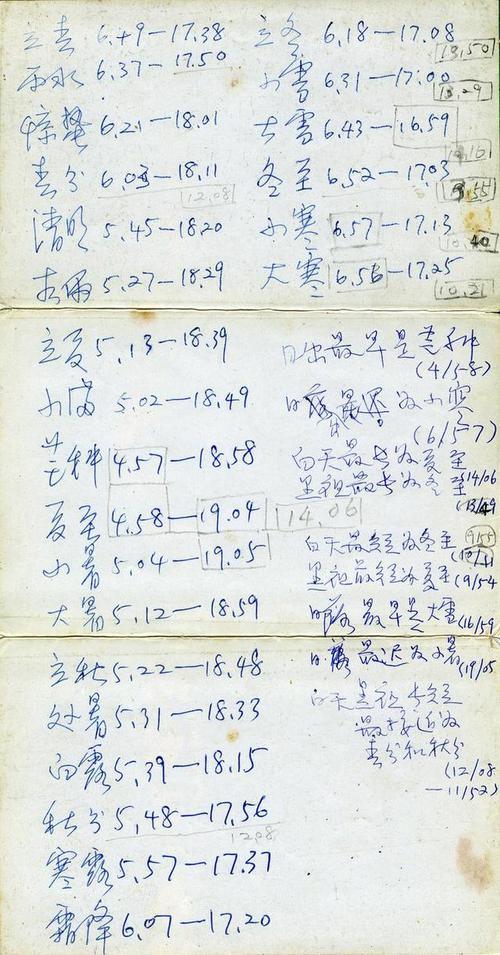 立春 6.49—17.38
雨水 6.37—17.50
惊蛰 6.21—18.01
春分 6.03—18.11
12.08
清明 5.45—18.20
谷雨 5.27—18.29
立冬 6.18—17.08
13.50
小雪 6.31—17.00
10.29
大雪 6.43—16.59
冬至 6.52—17.03
小寒 6.57—17.13
10.40
大寒 6.56—17.25
10.21
立夏 5.13—18.39
小满 5.02—18.49
芒种 4.57—18.58
夏至 4.58—19.04 14.06
小暑 5.04—19.05
大暑 5.12—18.59
日出最早是芒种
(4/58)
日 为小寒
(6/57)
白天最长为夏至
(14/06
黑夜最长为冬至
(13/49
白天最短为冬至
(10/11
9.55
黑夜最短为夏至
(9/54
日落最早是大雪
(16/59
日落最迟为小暑
(19/05
白天黑夜长短
最接近为
春分和秋分
(12/08
—11/52)
立秋 5.22—18.48
处暑 5.31—18.33
白露 5.39—18.15
秋分 5.48—17.56
12.08
寒露 5.57—17.37
霜降 6.07—17.20